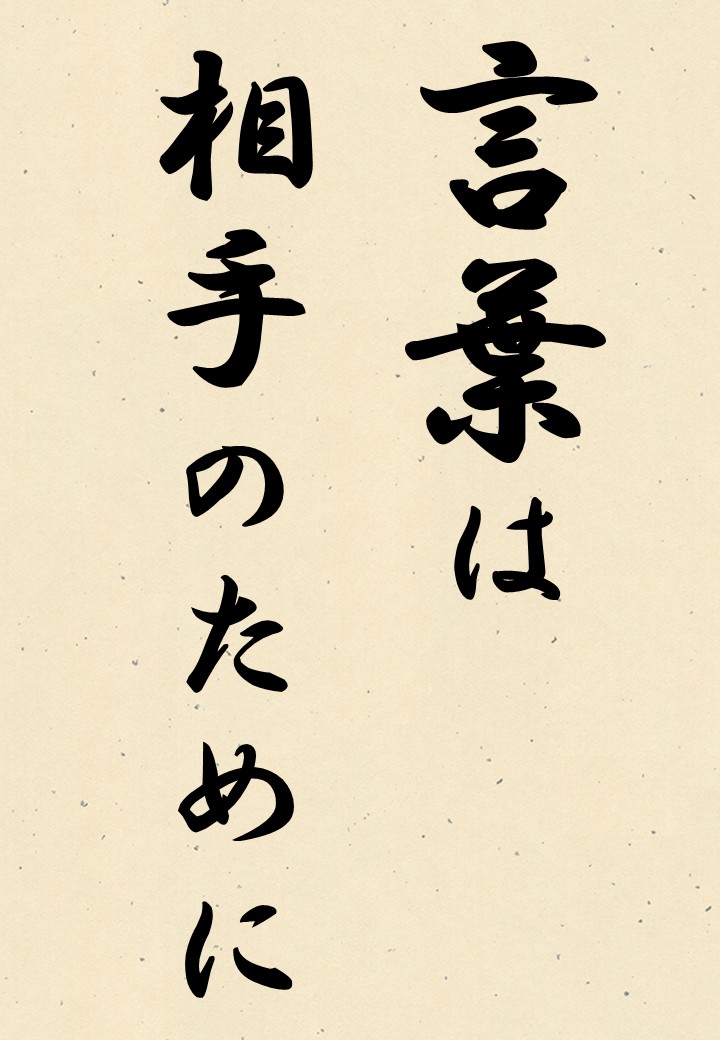 言葉は
相手のために